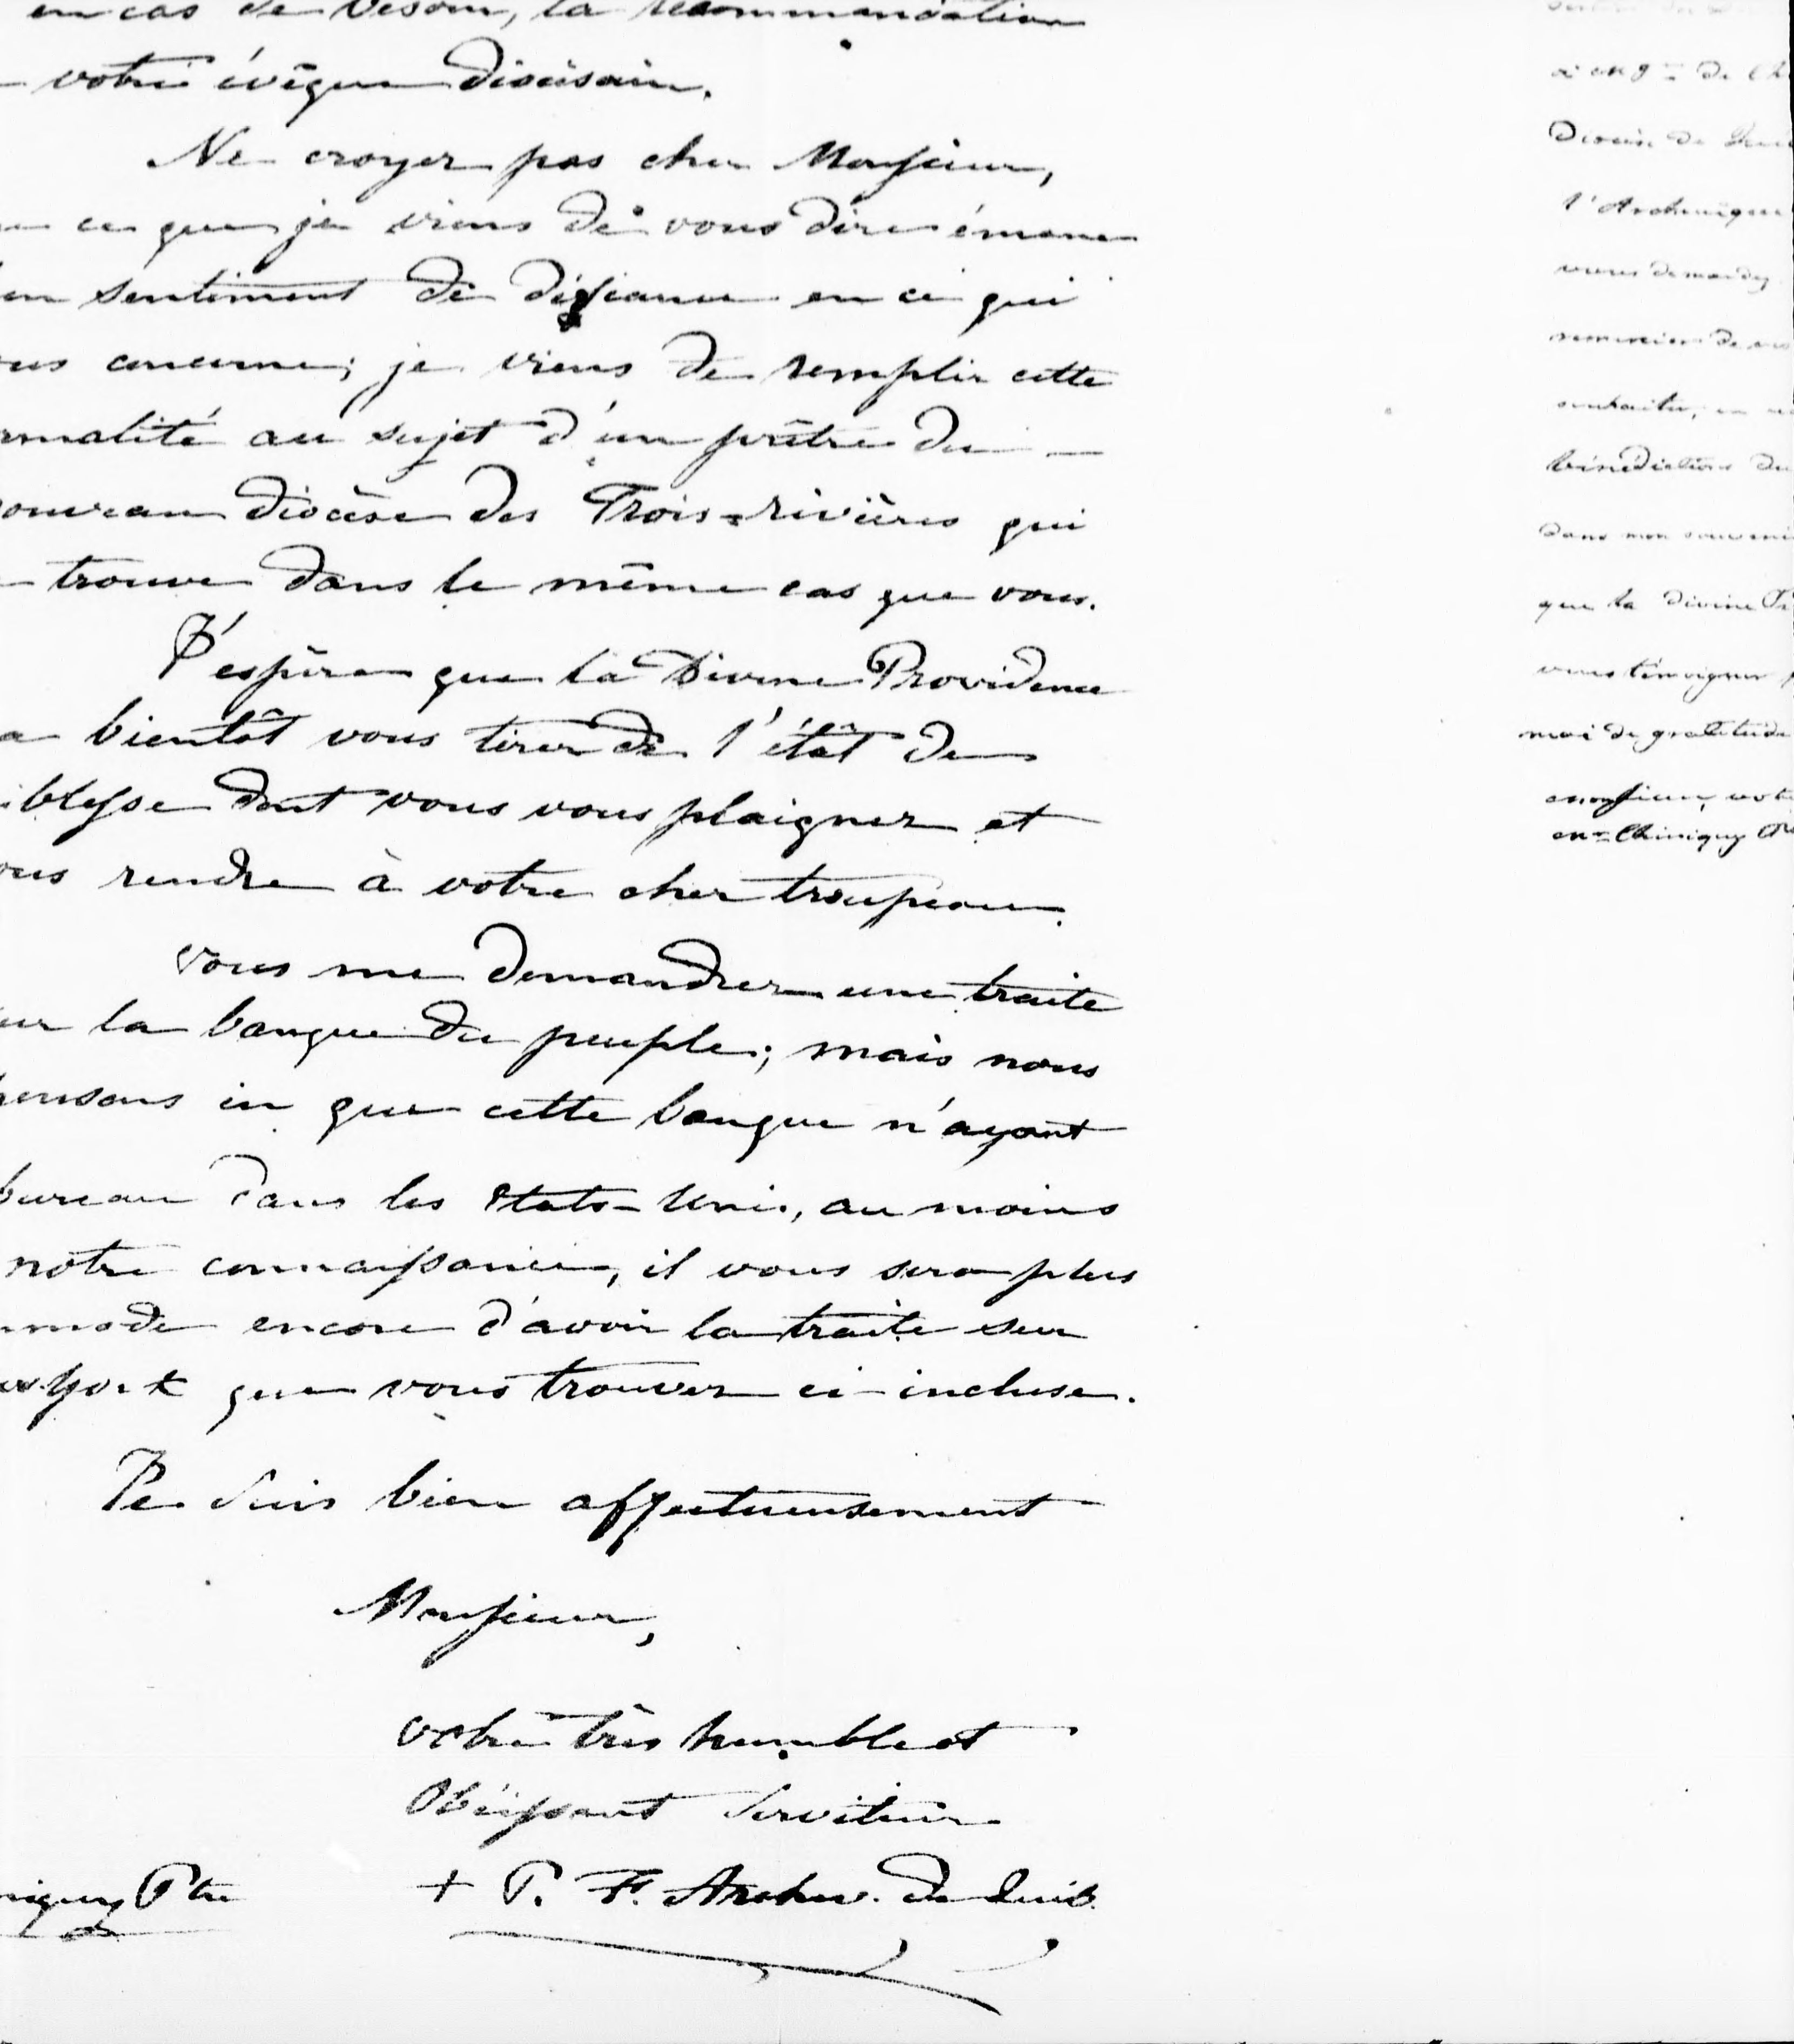 en cas de besoin, la recommandation
votre évêque diocésain.
Ne croyez pas cher Monsieur,
ce que je viens de vous dire émane
un sentiment de défiance en ce qui
ous concerne; je viens de remplir cette
rmalité au sujet d'un prêtre du
ouveau diocèse des Trois-rivières qui
trouve dans le même cas que vous.
J'espère que la Divine Providence
a bientôt vous tirer de l'état de
iblesse dont vous vous plaignez et
ous rendre à votre cher troupeau.
Vous me demandez une traite
ur la banque du peuple; mais nous
pensons ici que cette banque n'ayant
bureau dans les Etats-Unis, au moins
notre connaissance, il vous sera plus
mmode encore d'avoir la traite sur
w York que vous trouvez ci-incluse.
Je suis bien affectueusement
Monsieur,
Votre très humble et
Obéissant Serviteur
+ P. F. Archev. de Québ.
niquy Ptre
à Mgr de Ch
Diocèse de
l'Archevêque
vous demandez
remercier de vos
souhaiter, en
bénédictions du
dans mon souveni
que la divine Pr
vous témoigner
moi de gratitude
Monsieur, vot
Mr Chiniquy Ptr